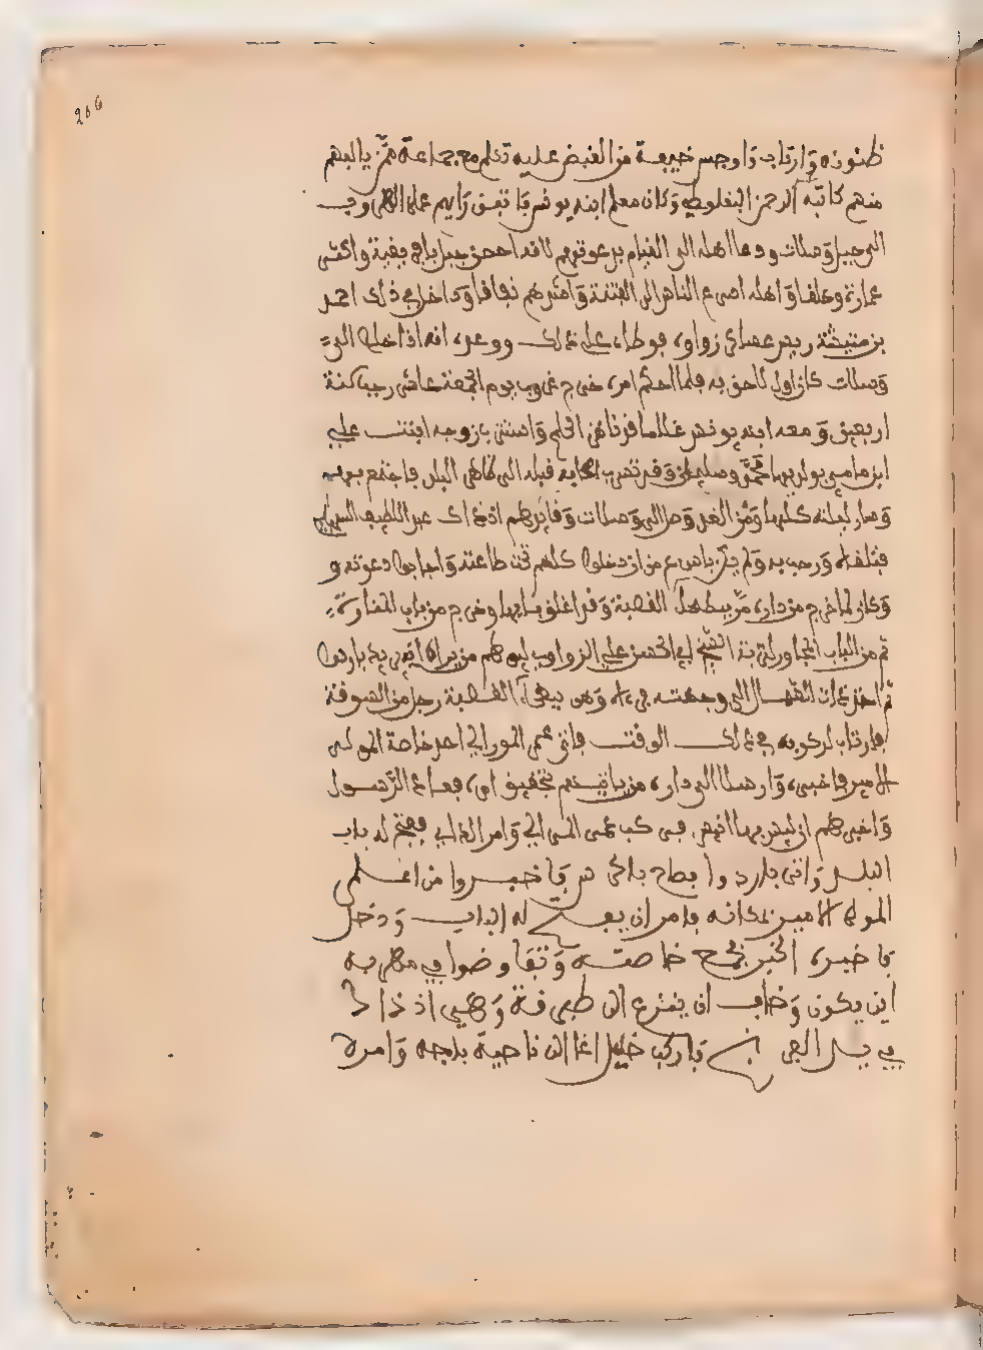 206
ظنونه وارتاب واوجس خيفة من القبض عليه تكلم مع جماعة ممن يالفهم
منهم كاتبه الرحمن البقلوطي وكان معلم ابنه يونس فاتفق رايهم على الهروب
الى جبل وسلات ودعا اهله الى القيام بدعوته لانه احصن جبل بافريقية واكثر
عمارة وعلفا واهله اسرع الناس الى الفتنة واشدهم نفاقا وداخل في ذلك احمد
بن متيشة ريس عسكر زواوه فوطاه على ذلك ووعده انه اذا خلص الى
وسلات كان اول لاحق به فلما احكم امره خرج غروب يوم الجمعة عاشر رجب سنة
اربعين ومعه ابنه يونس غلاما قد ناهز الحلم واستثنى بزوجه ابنت علي
ابن مامي بولديها محمد وسليمان وقد تقدمت قبله الى ظاهر البلد فاجتمع بهم
وسار ليلته كلها ومن الغد وصل الى وسلات وقايدهم اذ ذاك عبد اللطيف السهيلي
فتلقاه ورحب به ولم يكن باسرع من ان دخلوا كلهم تحت طاعته واجابوا دعوته و
وكان لما خرج من داره مر ببطحاء القصبة وقد اغلق بابها وخرج من باب المنارة
ثم من الباب المجاور لتربة الشيخ ابي الحسن علي
ثم اخذ ذات الشمال الى وجهته فرءاه وهو ببطحاء القصبة رجل من الصوفة
فارتاب لركوبه في ذلك الوقت فاتى عمر المورالي احد خاصة المولى
الامير فاخبره وارسل الى داره من ياتيهم بتحقيق امره فعاد الرسول
واخبرهم ان ليس بها انيس فركب عمر المورالي وامر الداي ففتح له باب
البلد واتى باردو
المولى الامير بمكانه فامر ان يفتح له الباب ودخل
فاخبره الخبر فجمع خاصته وتفاوضوا في مهربه
اين يكون وخاف ان ينزع الى طبرقة وهي اذ ذاك
في يد الجنويز فاركب خليل اغا الى ناحية باجه وامره